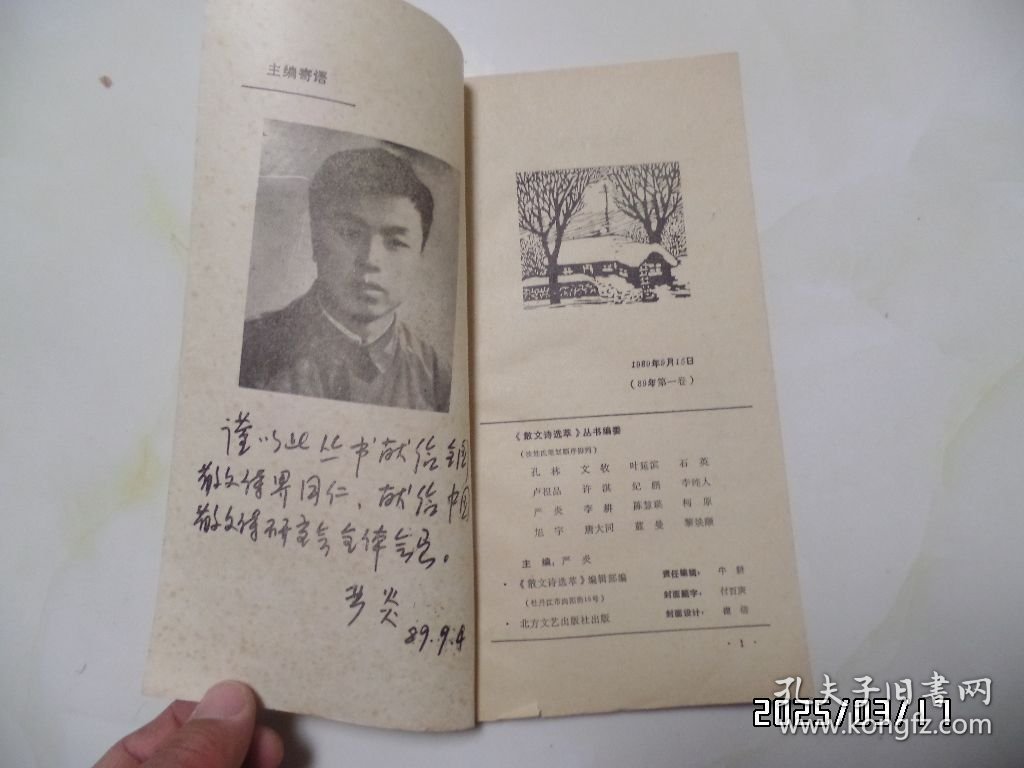 主编寄语
谨以此丛书献给全国
散文诗界同仁,献给中国
散文诗研究会全体会员。
严炎
89.9.4
1989年9月15日
(89年第一卷)
《散文诗选萃》丛书编委
(按姓氏笔划顺序排列)
孔林 文牧 叶延滨 石英
卢祖品 许淇 纪鹏 李纯人
严炎 李耕 陈慧瑛 柯原
旭宇 唐大同 蓝曼 黎焕颐
主编:严炎
·《散文诗选萃》编辑部编
(牡丹江市向阳街15号)
·北方文艺出版社出版
责任编辑:牛耕
封面题字:付百庚
封面设计:
·1·
孔夫子旧书网
2025/03/11
www.kongfz.com